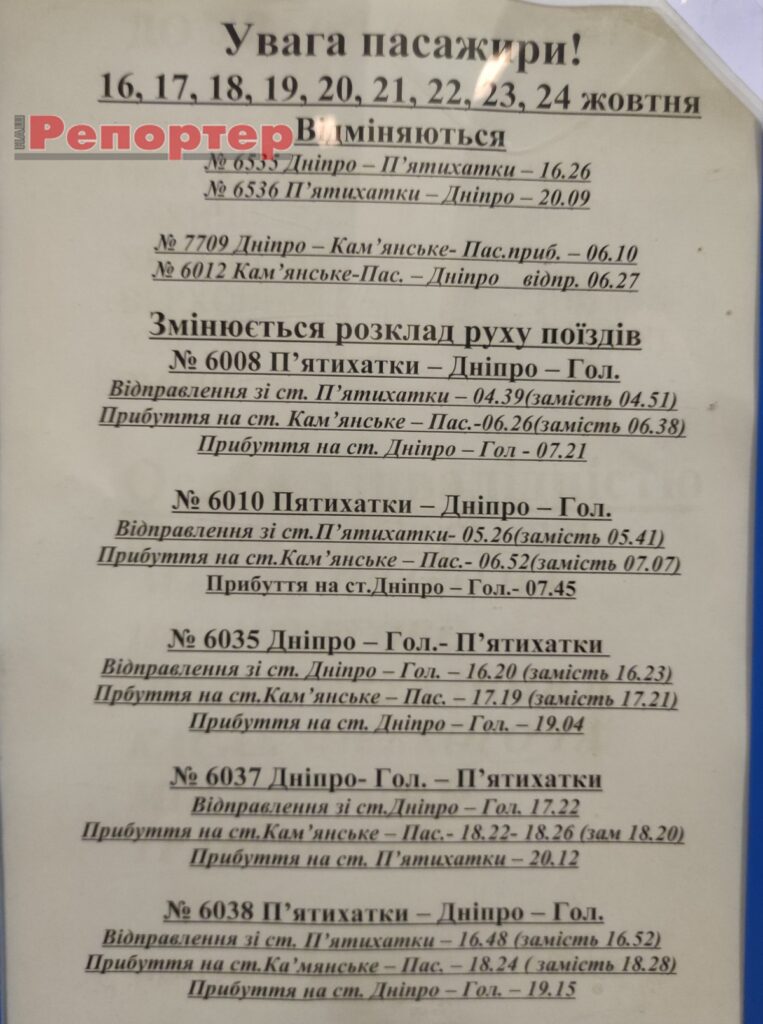 Увага пасажири!
16, 17, 18, 19, 20, 21, 22, 23, 24 жовтня
НАШ Репортер
Відміняються
№ 6535 Дніпро – П’ятихатки – 16.26
№ 6536 П’ятихатки – Дніпро – 20.09
№ 7709 Дніпро – Кам’янське- Пас.приб. – 06.10
№ 6012 Кам’янське-Пас. – Дніпро відпр. 06.27
Змінюється розклад руху поїздів
№ 6008 П’ятихатки – Дніпро – Гол.
Відправлення зі ст. П’ятихатки – 04.39(замість 04.51)
Прибуття на ст. Кам’янське – Пас.-06.26(замість 06.38)
Прибуття на ст. Дніпро – Гол - 07.21
№ 6010 Пятихатки – Дніпро – Гол.
Відправлення зі ст.П’ятихатки- 05.26(замість 05.41)
Прибуття на ст.Кам’янське – Пас.- 06.52(замість 07.07)
Прибуття на ст.Дніпро – Гол.- 07.45
№ 6035 Дніпро – Гол.- П’ятихатки
Відправлення зі ст. Дніпро – Гол. – 16.20 (замість 16.23)
Прбуття на ст.Кам’янське – Пас. – 17.19 (замість 17.21)
Прибуття на ст. Дніпро – Гол. – 19.04
№ 6037 Дніпро- Гол. – П’ятихатки
Відправлення зі ст.Дніпро – Гол. 17.22
Прибуття на ст.Кам’янське – Пас.- 18.22- 18.26 (зам 18.20)
Прибуття на ст. П’ятихатки – 20.12
№ 6038 П’ятихатки – Дніпро – Гол.
Відправлення зі ст. П’ятихатки – 16.48 (замість 16.52)
Прибуття на ст.Ка’мянське – Пас. – 18.24 ( замість 18.28)
Прибуття на ст. Дніпро – Гол. – 19.15